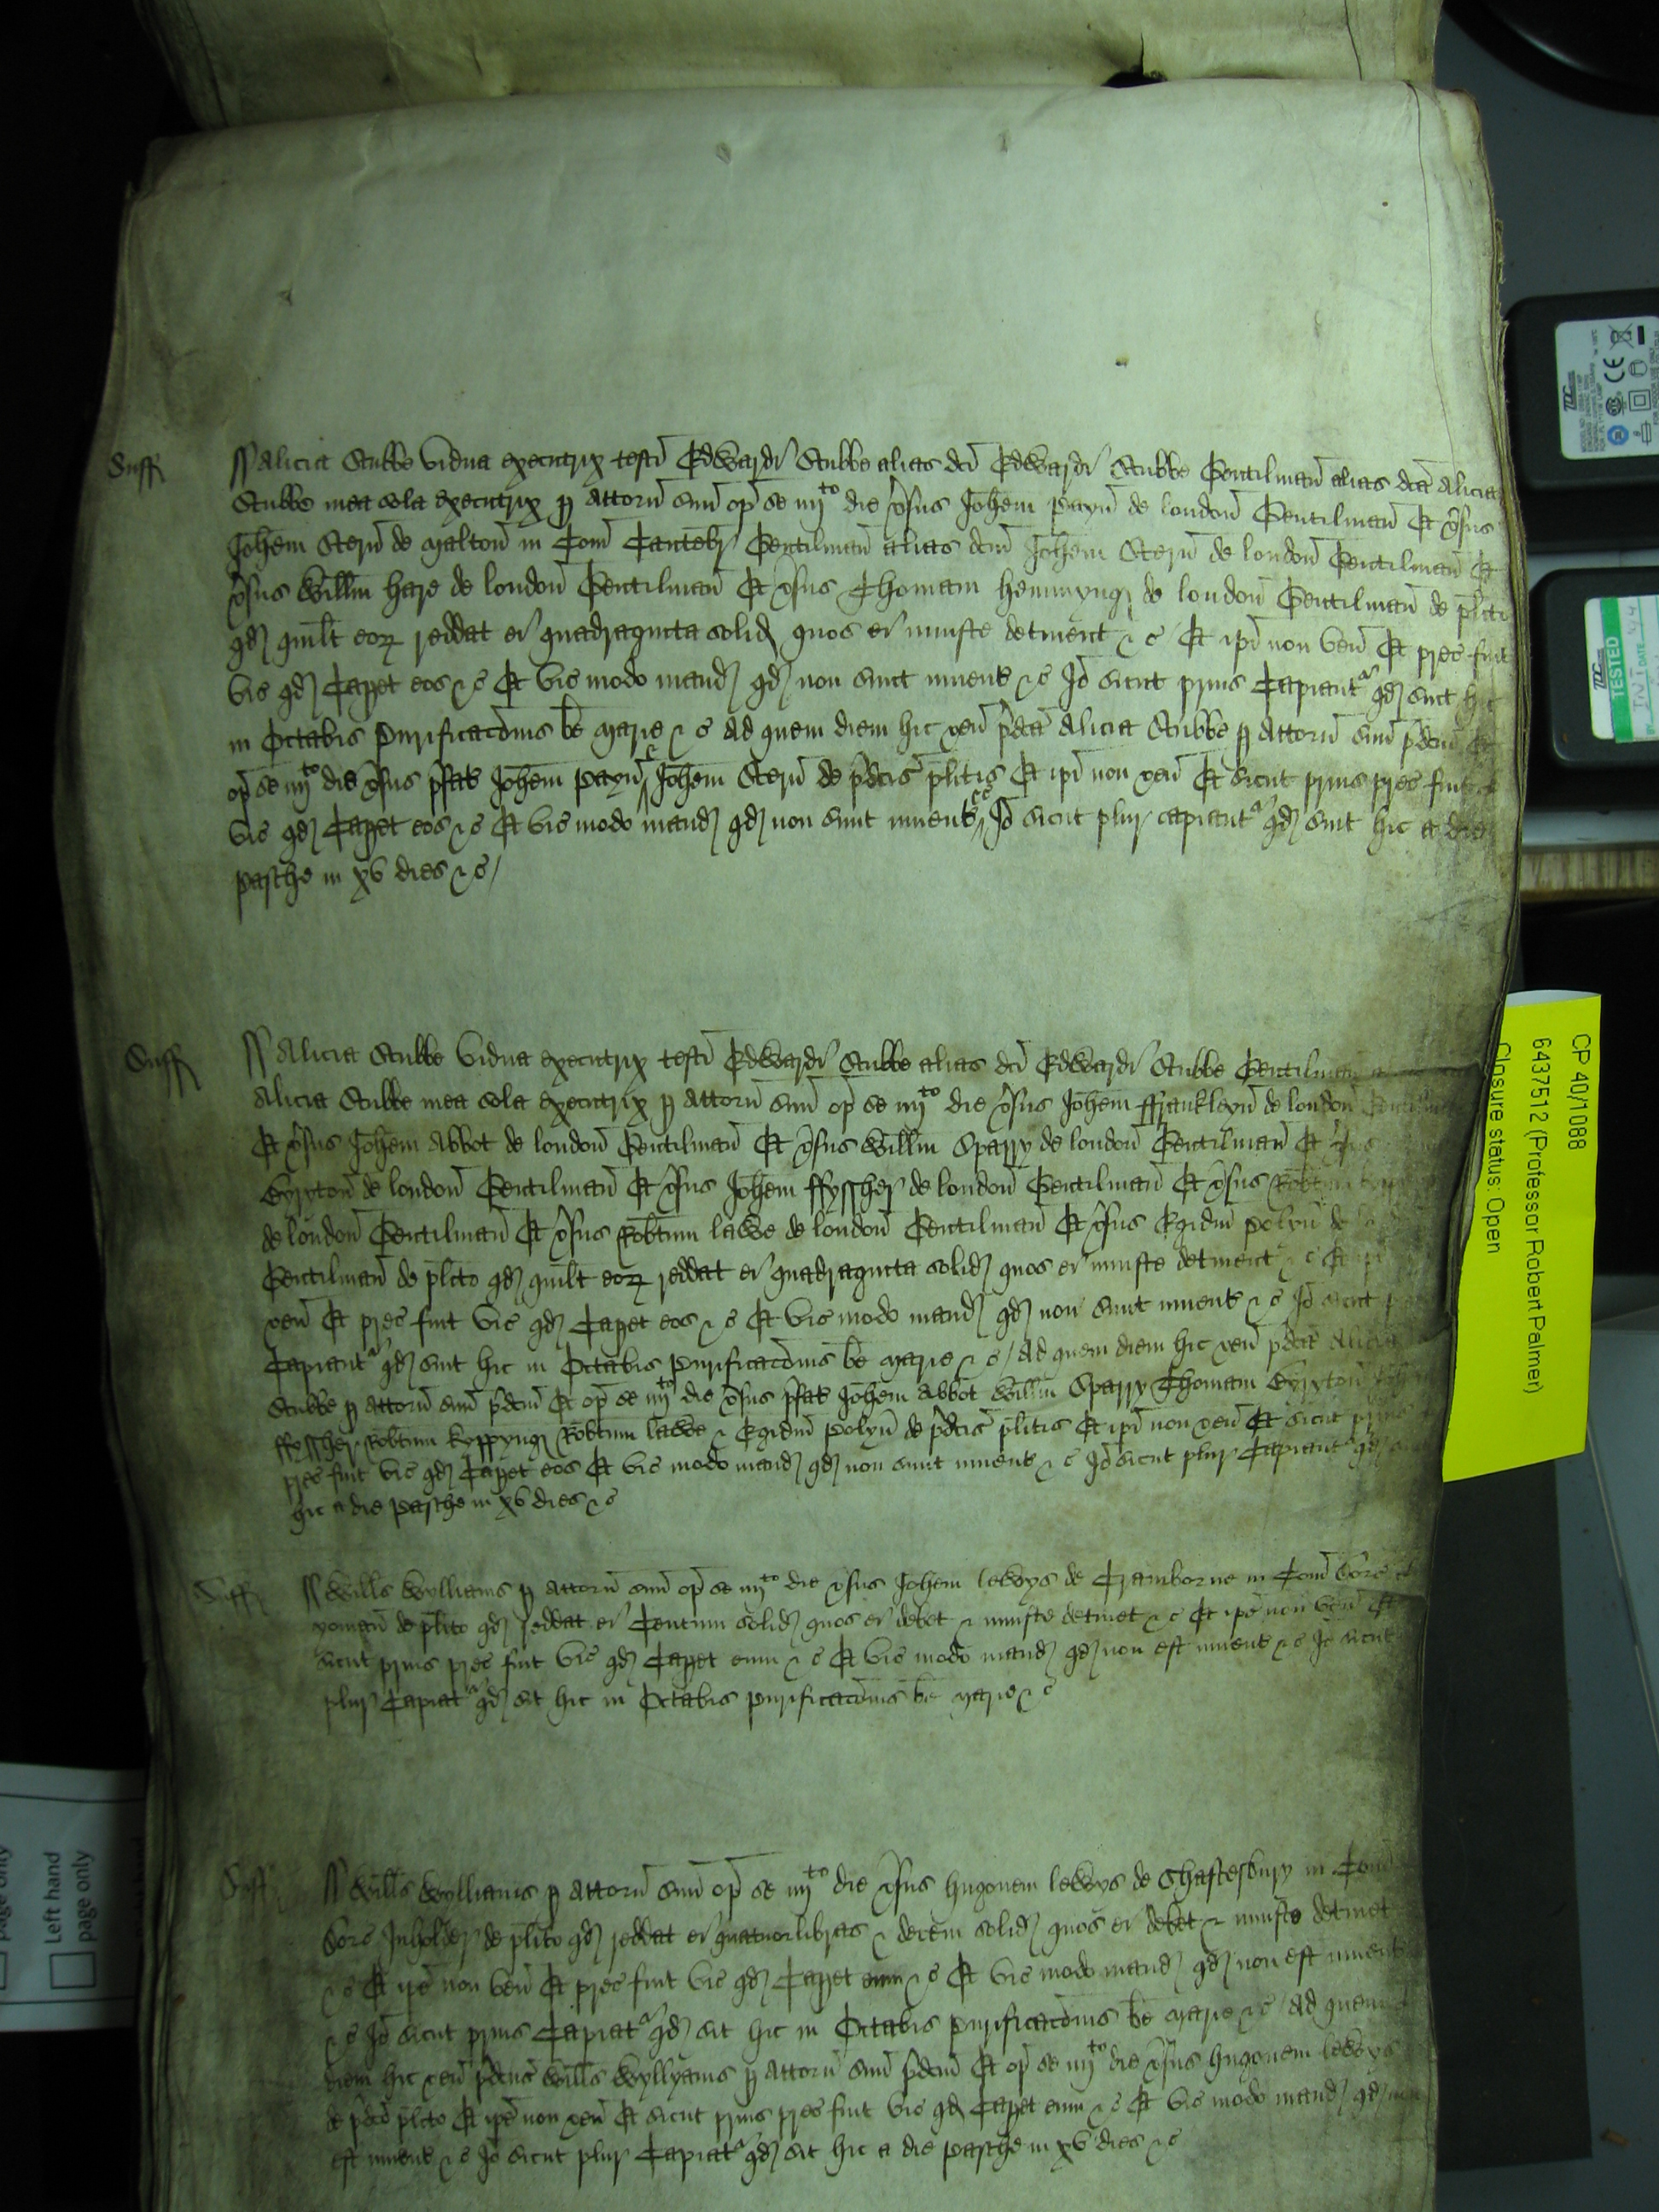 Suff
Alicia Stubbe vidua executrix testi Edwardi Stubbe alias dci Edwardi Stubbe Gentilman alias dca Alicia
Stubbe mea sola executrix p attorn suu op se iiijto die vsus Johem Payn de london Gentilman Et vsus
Johem Stern de Malton in Com Cantebr Gentilman alias dcm Johem Stern de london Gentilman Et
vsus Willm hare de london Gentilman Et vsus Thomam hemmyng de london Gentilman de plito
qd quilt eoz reddat ei quadraginta solid quos ei iniuste detinent &c Et ipi non ven Et prec fuit
vic qd Capet eos &c Et vic modo mand qd non sunt invent &c Id sicut prius Capiantr qd sint hic
in Octabis Purificacois be Marie &c Ad quem diem hic ven pdca Alicia Stubbe p attorn suu pdcm Et
op se iiijto die vsus pfat Johem Payn & Johem Stern de pdcis plitis Et ipi non ven Et sicut prius prec fuit
vic qd Capet eos &c Et vic modo mand qd non sunt invent &c Id sicut plur capiantr qd sint hic a die
Pasche in xv dies &c
Suff
Alicia Stubbe vidua executrix testi Edwardi Stubbe alias dci Edwardi Stubbe Gentilman
Alicia Stubbe mea sola executrix p attorn suu op se iiijto die vsus Johem ffrankleyn de london Gentilman
Et vsus Johem Abbot de london Gentilman Et vsus Willm Sparry de london Gentilman Et vsus
Gyrton de london Gentilman Et vsus Johem ffyssher de london Gentilman Et vsus Robtm
de london Gentilman Et vsus Robtum lawe de london Gentilman Et vsus Egidiu Polyn de
Gentilman de plito qd quilt eoz reddat ei quadraginta solid quos ei iniuste detinent &c Et ipi
ven Et prec fuit vic qd Capet eos &c Et vic modo mand qd non sunt invent &c Id sicut
Capiantr qd sint hic in Octabis Purificacois be Marie &c Ad quem diem hic ven pdca Alicia
Stubbe p attorn suu pdcm Et op se iiijto die vsus pfat Johem Abbot Willm Sparry Thomam Gyrton
ffyssher Robtum kyppyng Robtum lawe & Egidiu Polyn de pdcis plitis Et ipi non ven Et sicut prius
prec fuit vic qd Capet eos Et vic modo mand qd non sunt invent &c Id sicut plur Capiantr qd
hic a die Pasche in xv dies &c
Suff
Wills Wylliams p attorn suu op se iiijto die vsus Johem lewys de Cramborne in Com Dors
yoman de plito qd reddat ei Centum solid quos ei debet & iniuste detinet &c Et ipe non ven Et
sicut prius prec fuit vic qd Capet eum &c Et vic modo mand qd non est invent &c Id sicut
plur Capiatr qd sit hic in Octabis Purificacois be Marie &c
Suff
Wills Wylliams p attorn suu op se iiijto die vsus hugonem lewys de Shaftesbury in Com
Dors Inholder de plito qd reddat ei quatuor libras & decem solid quos ei debet & iniuste detinet
&c Et ipe non ven Et prec fuit vic qd Capet eum &c Et vic modo mand qd non est invent
&c Id sicut prius Capiatr qd sit hic in Octabis Purificacois be Marie &c Ad quem
diem hic ven pdcus Wills Wyllyams p attorn suu pdcm Et op se iiijto die vsus hugonem lewys
de pdco plito Et ipe non ven Et sicut prius prec fuit vic qd Capet eum &c Et vic modo mand qd non
est invent &c Id sicut plur Capiatr qd sit hic a die Pasche in xv dies &c
CP 40/1088
6437512 (Professor Robert Palmer)
Closure status: Open
TESTED
Left hand
page only